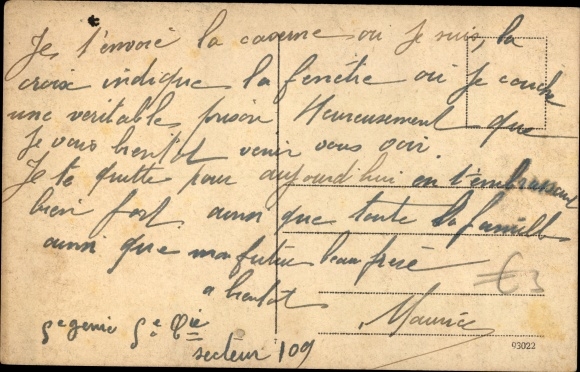 Je t'envoie la caverne où je suis, la
croix indique la fenêtre où je couche
une veritable prison Heureusement que
Je vais bientot venir vous voir
Je te quitte pour aujourd'hui en t'embrassant
bien fort ainsi que toute la famille
ainsi que mon futur beau frere
a bientot
Maurice
€3
5e genie 5e Cie
secteur 109
93022